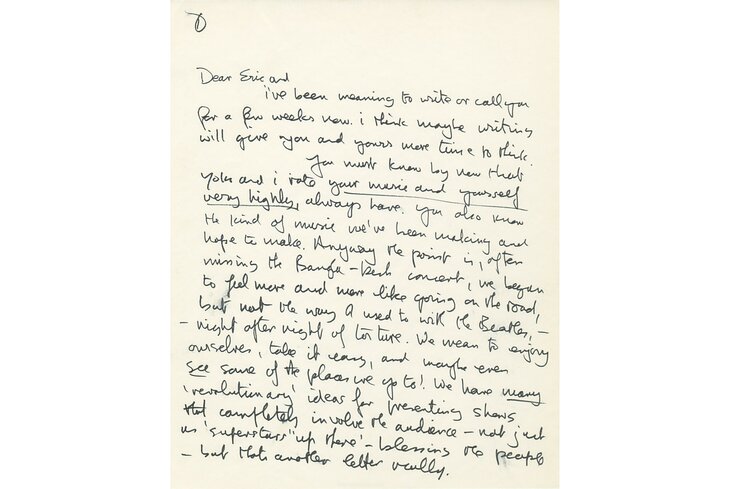 ①
Dear Eric and
i've been meaning to write or call you
for a few weeks now. i think maybe writing
will give you and yours more time to think.
You must know by now that
Yoko and i rate your music and yourself
very highly, always have. You also know
the kind of music we've been making and
hope to make. Anyway the point is, after
missing the Bangla-Desh concert, we began
to feel more and more like going on the road,
but not the way I used to with the Beatles, –
– night after night of torture. We mean to enjoy
ourselves, take it easy, and maybe even
see some of the places we go to! We have many
'revolutionary' ideas for presenting shows
that completely involve the audience – not just
as 'superstars' 'up there' – blessing the people
– but thats another letter really.